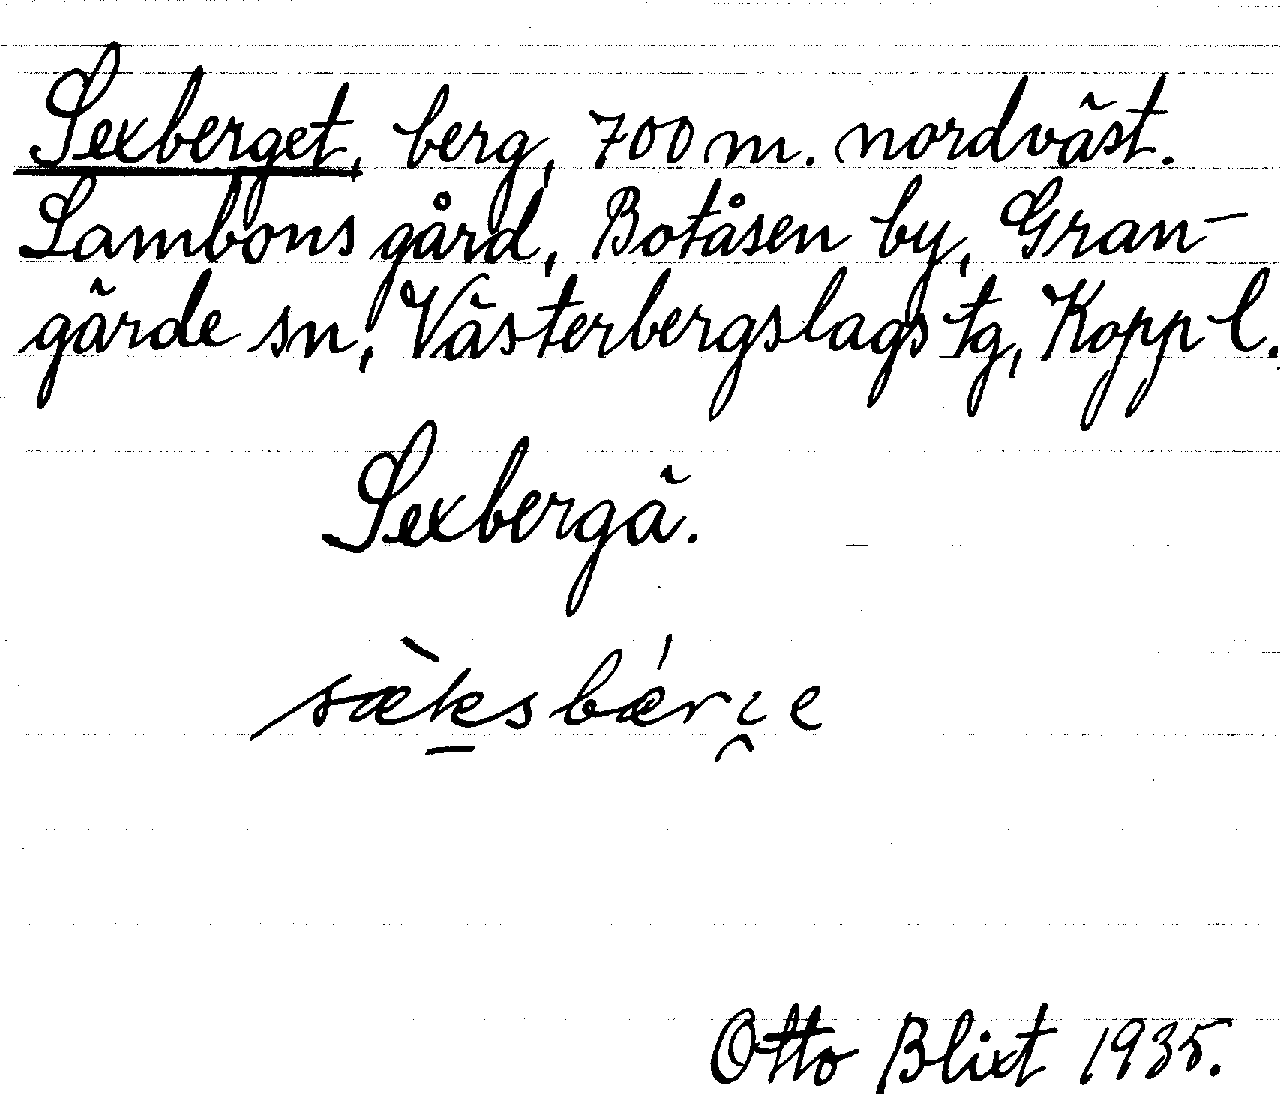 Sexberget, berg, 700 m. nordväst.
Lambons gård, Botåsen by, Gran-
gärde sn, Västerbergslags tg, Kopp l.
Sexbergä.
sæ̀ksbǽri̯e
Otto Blixt 1935.